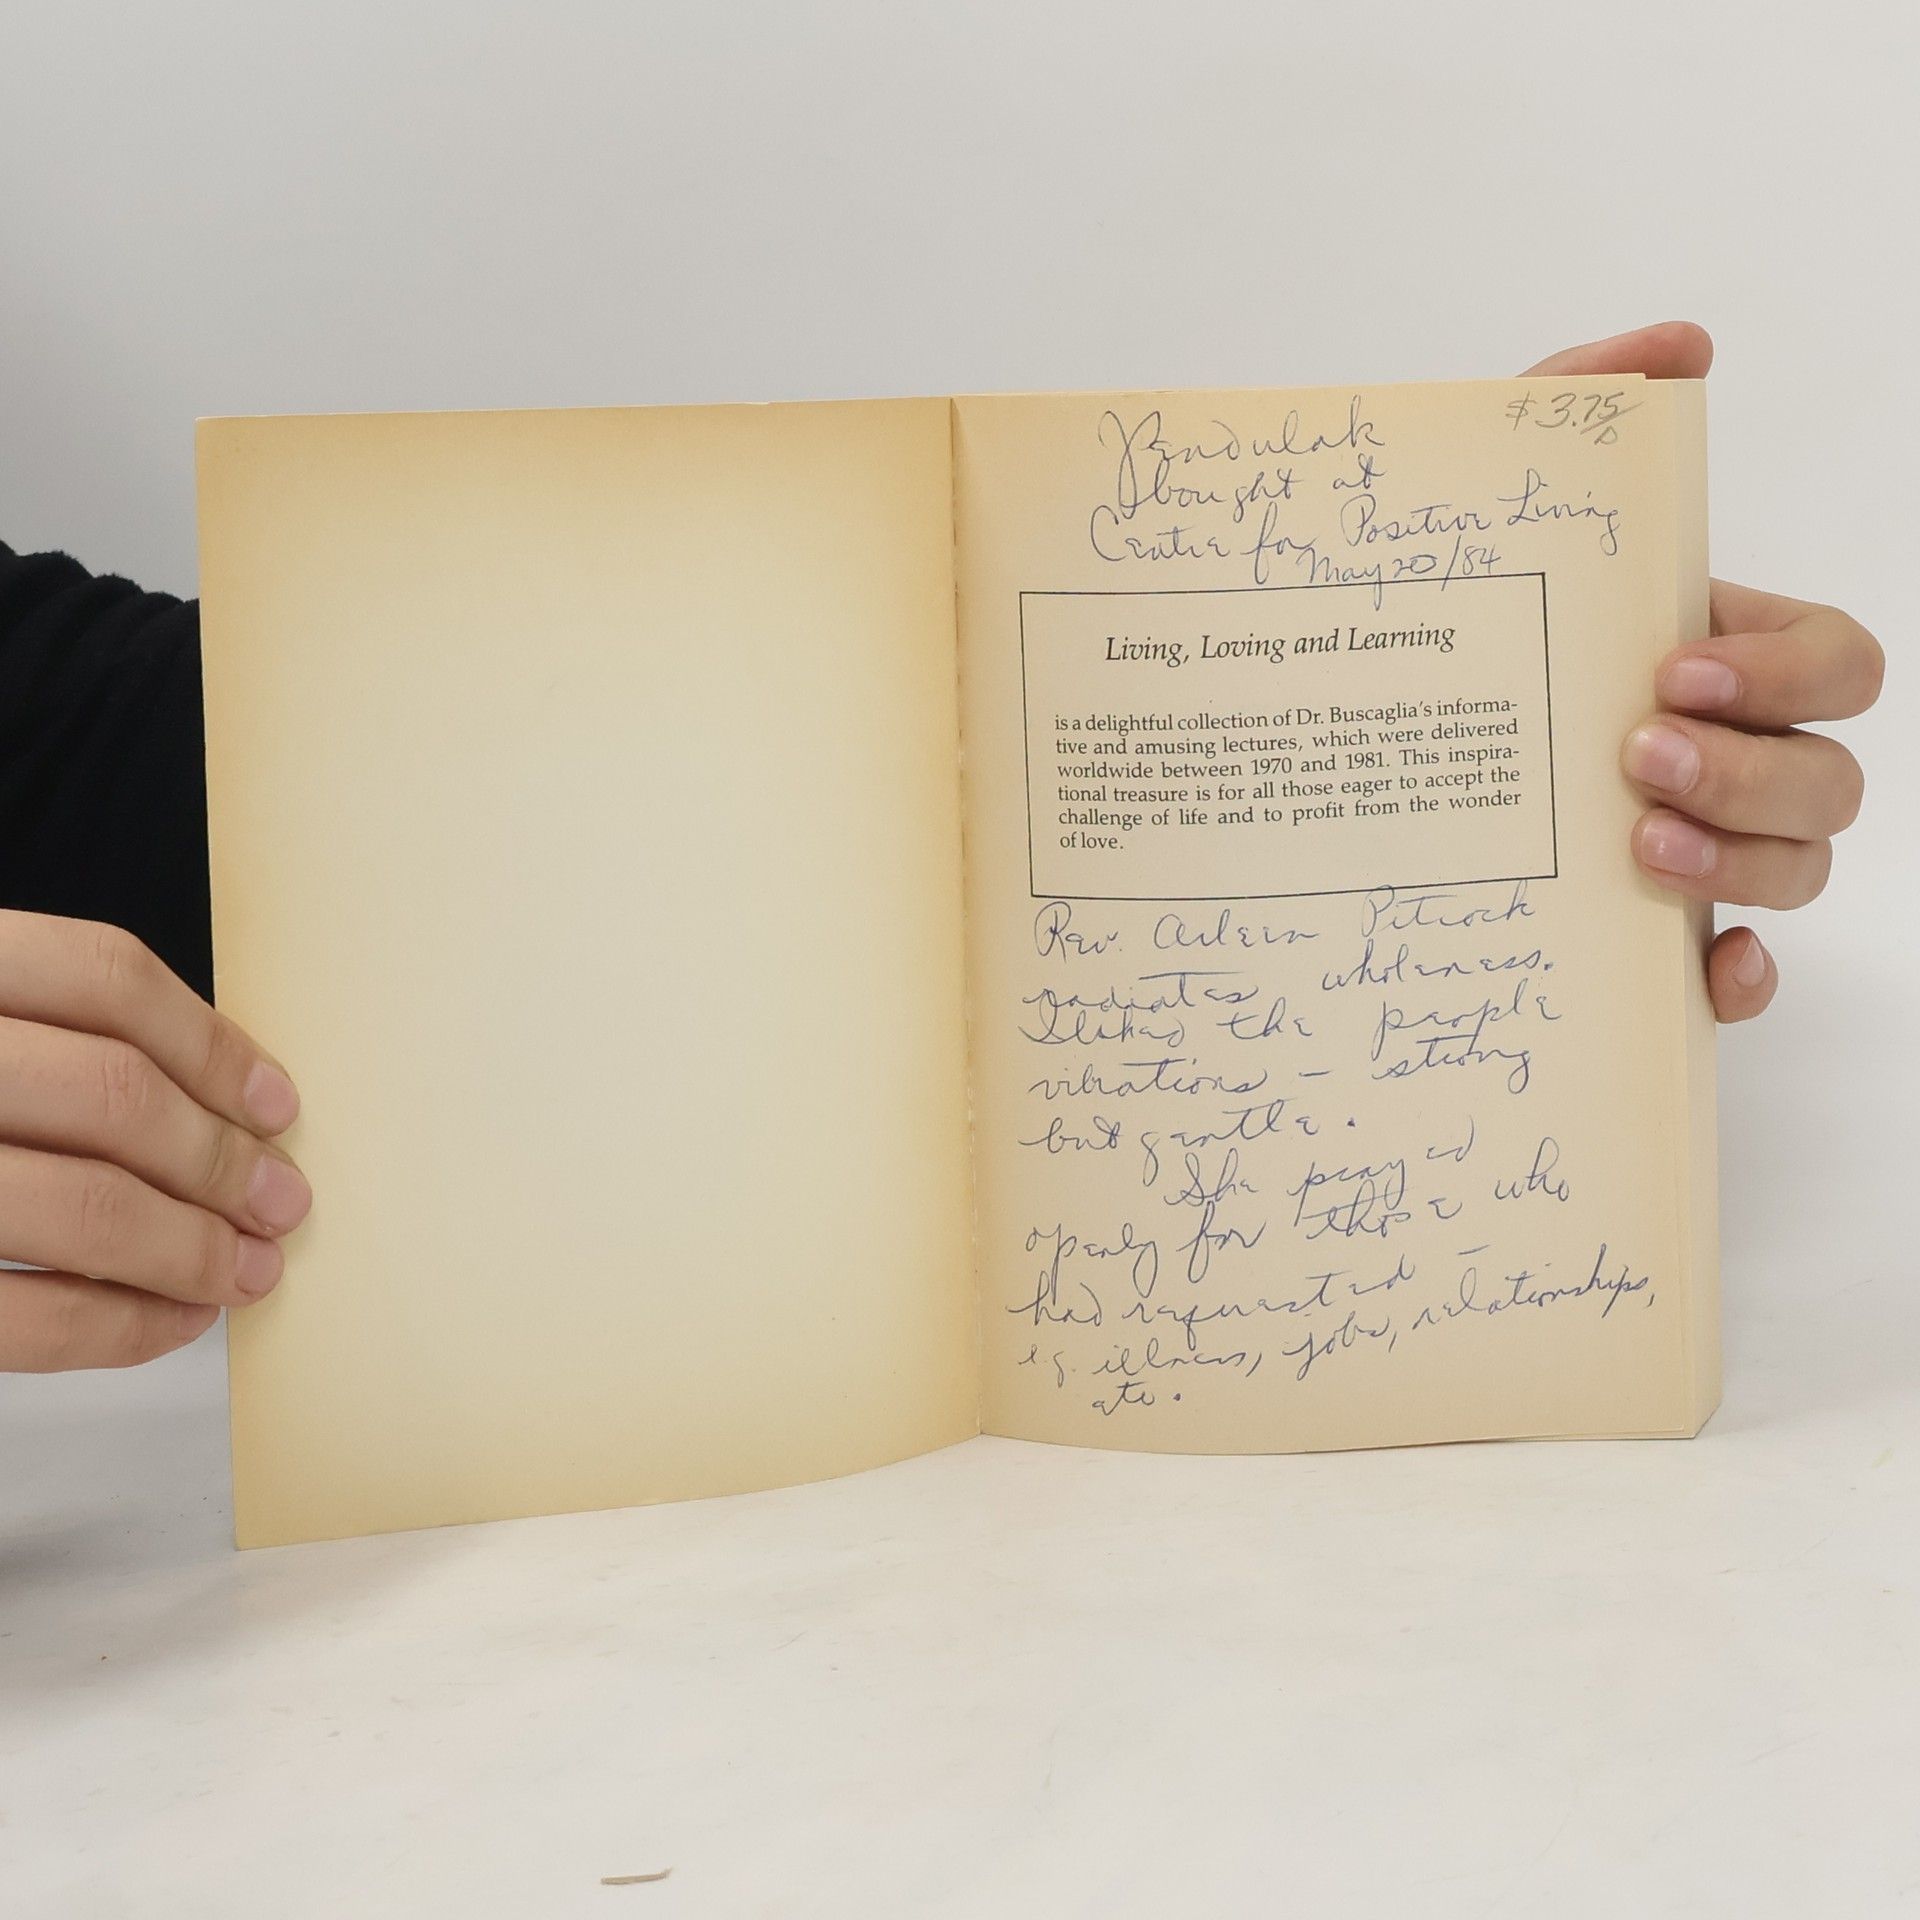 $ 3.75
bought at
Centre for Positive Living
May 20/84
Living, Loving and Learning
is a delightful collection of Dr. Buscaglia's informa-
tive and amusing lectures, which were delivered
worldwide between 1970 and 1981. This inspira-
tional treasure is for all those eager to accept the
challenge of life and to profit from the wonder
of love.
Rev. Arleen Pitrock
radiates wholeness.
I liked the people
vibrations – strong
but gentle.
She prayed
openly for those who
had requested –
e.g. illness, jobs, relationships,
etc.